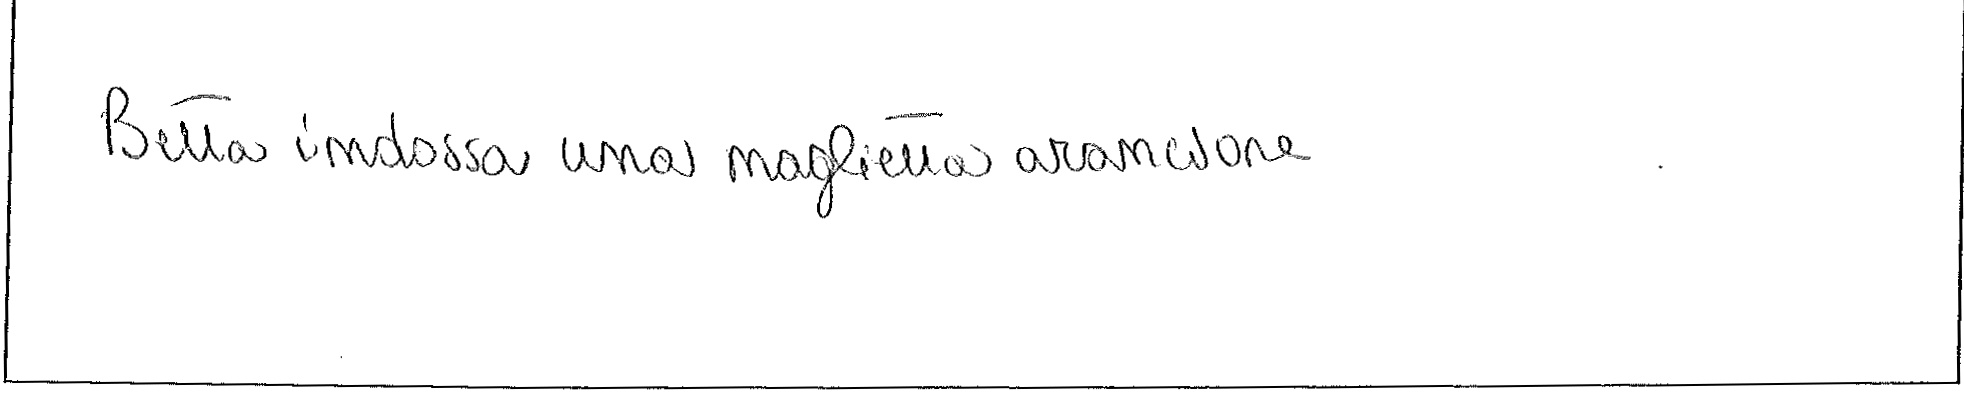 Betta indossa una maglietta arancione